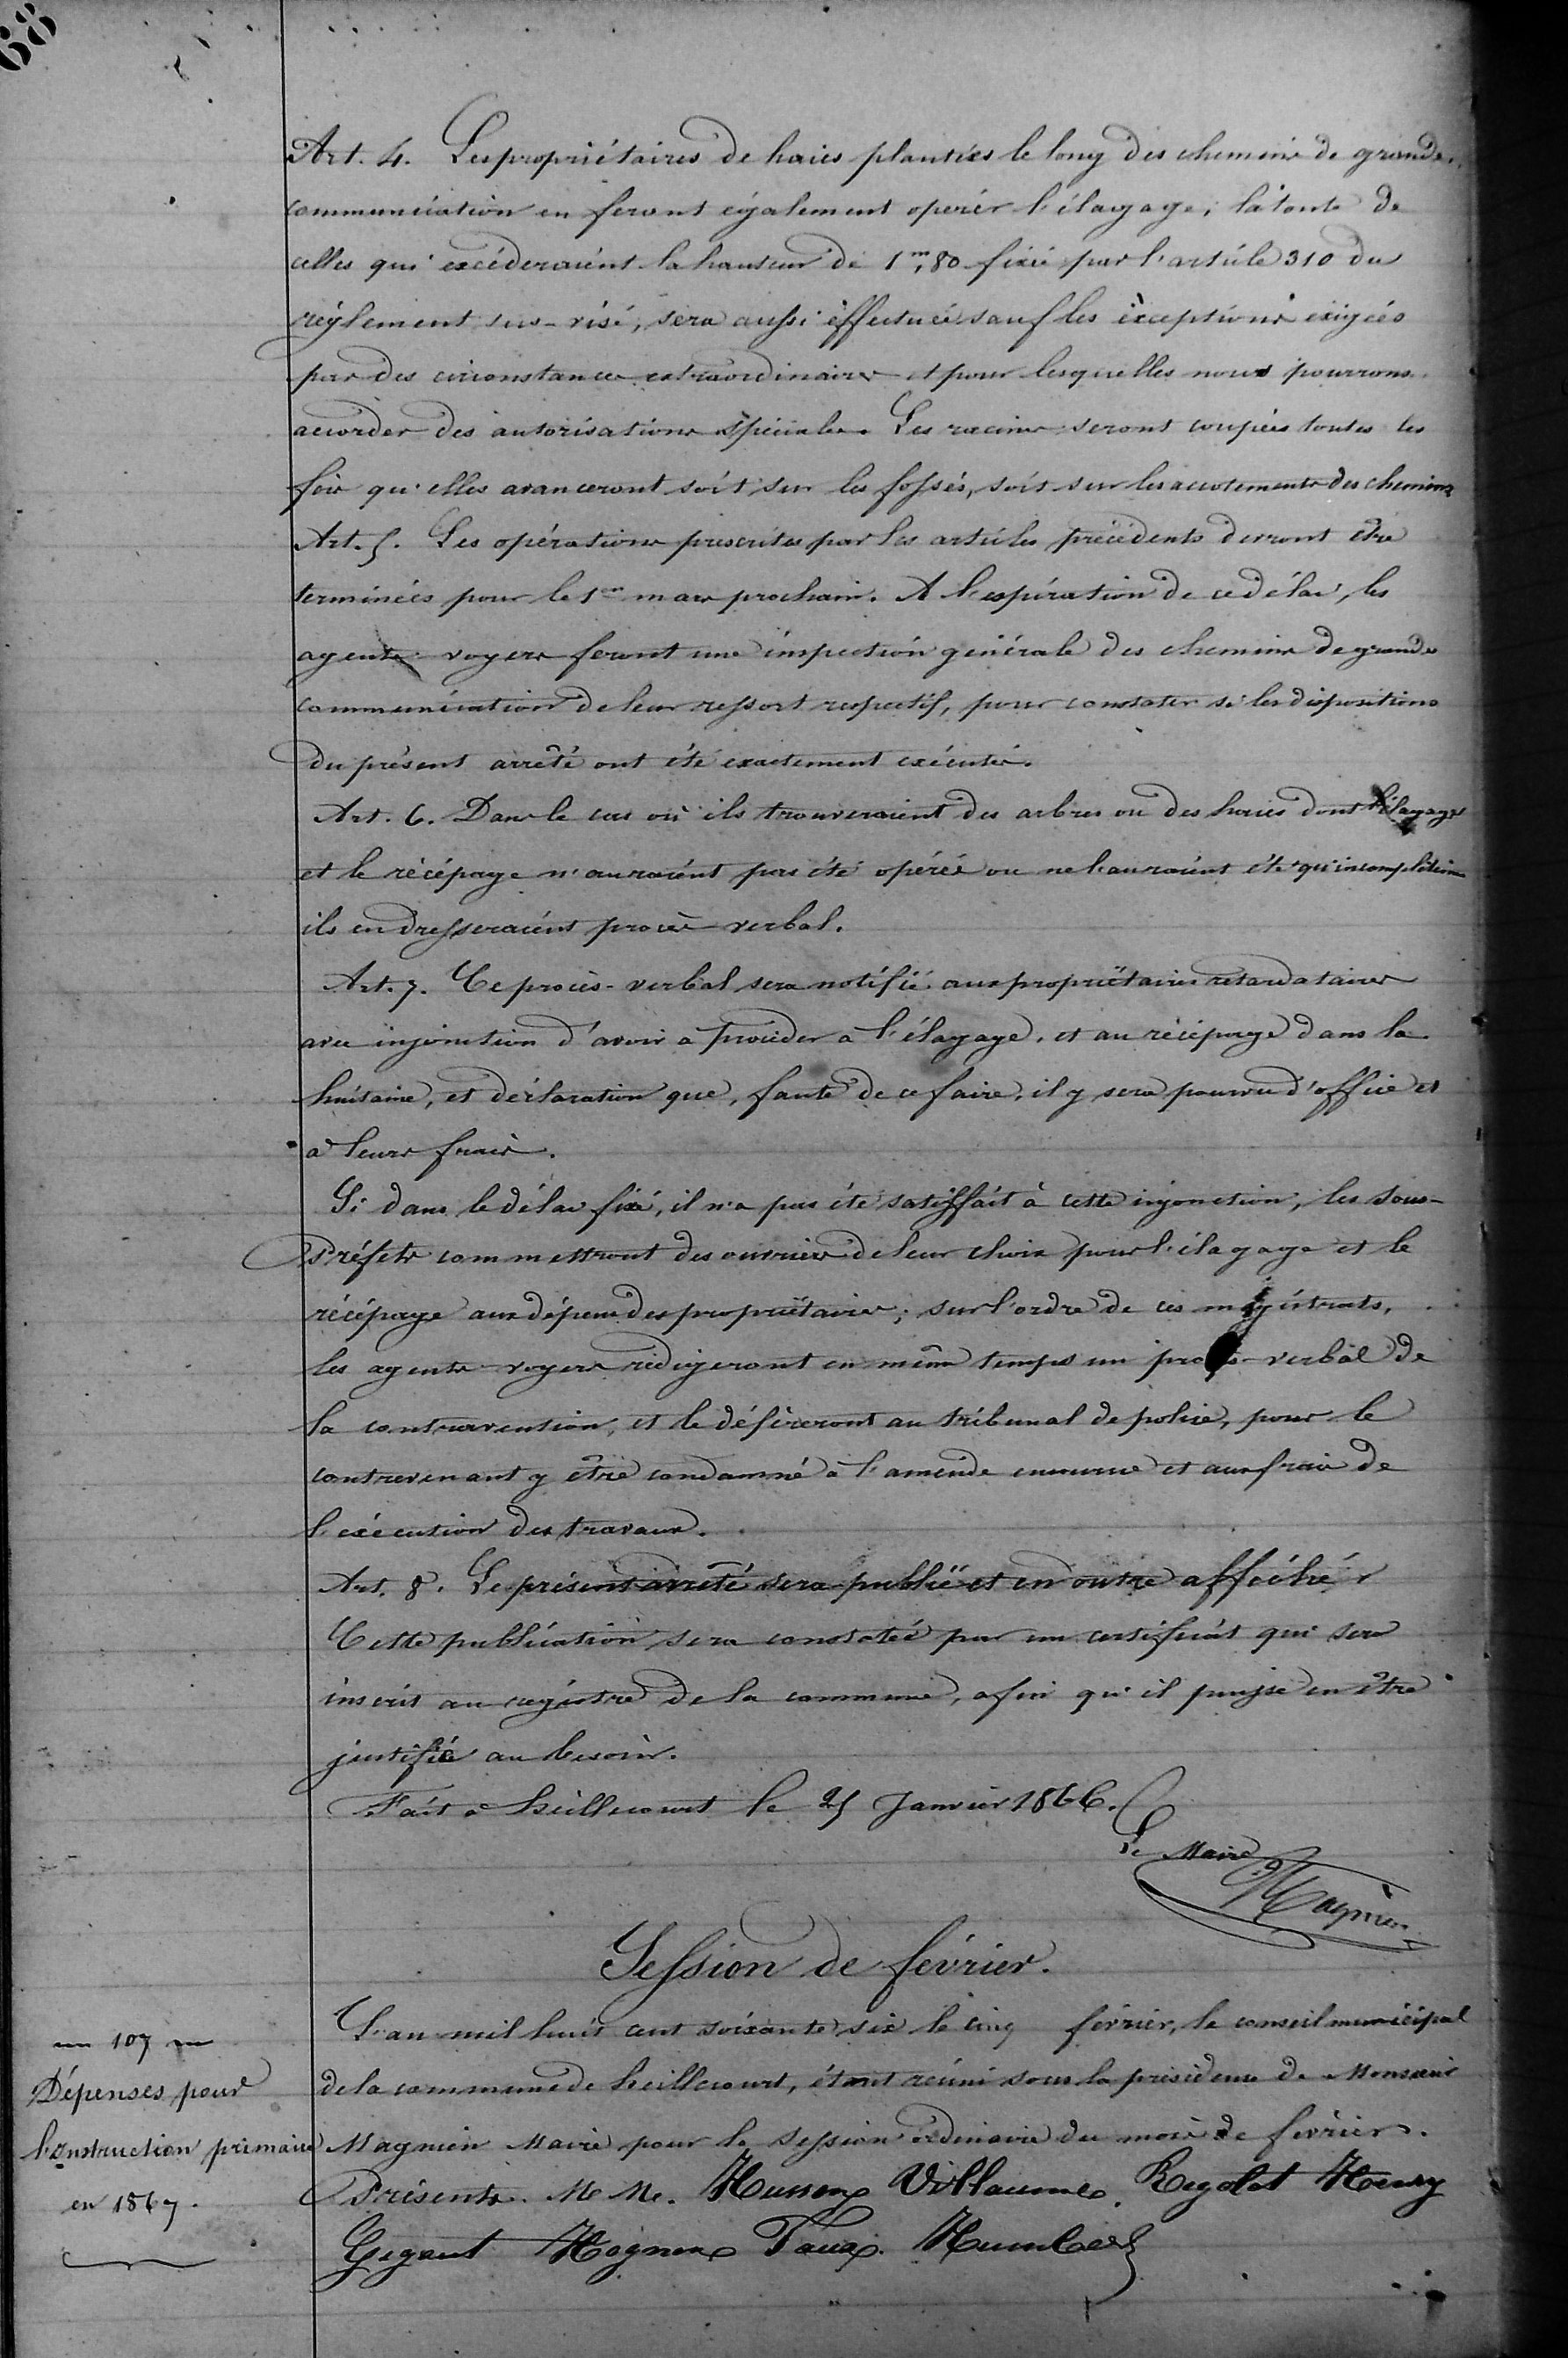 68
Art. 4. Les propriétaires de haies plantées le long des chemins de grande
communication en feront également opérer l'élagage; la tonte de
celles qui excéderaient la hauteur de 1m,80 fixée par l'article 310 du
règlement sus-visé, sera aussi effectuée sauf les exceptions exigées
par des circonstances extraordinaires et pour lesquelles nous pourrons
accorder des autorisations spéciales. Les racines seront coupées toutes les
fois qu'elles avanceront soit sur les fossés, soit sur les accotements des chemins
Art. 5. Les opérations prescrites par les articles précédents devront être
terminées pour le 1er mars prochain. A l'expiration de ce délai, les
agents-voyers feront une inspection générale des chemins de grande
communication de leur ressort respectif, pour constater si les dispositions
du présent arrêté ont été exactement exécutées.
Art. 6. Dans le cas où ils trouveraient des arbres ou des haies dont l'élagage
et le récépage n'auraient pas été opérés ou ne l'auraient été qu'incomplètem
ils en dresseraient procès-verbal.
Art. 7. Ce procès-verbal sera notifié aux propriétaires retardataires
avec injonction d'avoir à procéder à l'élagage, et au récépage dans la
huitaine, et déclaration que, faute de ce faire, il y sera pourvu d'office et
à leurs frais.
Si dans le délai fixé, il n'a pas été satisffait à cette injonction, les Sous-
Préfets commettront des ouvriers de leur choix pour l'élagage et le
récépage aux dépens des propriétaires; sur l'ordre de ces magistrats,
les agents-voyers rédigeront en même temps un procès-verbal de
la contravention, et le déféreront au tribunal de police, pour le
contrevenant y être condamné à l'amende encourue et aux frais de
l'exécution des travaux.
Art. 8. Le présent arrêté sera publié et en outre affiché
Cette publication sera constatée par un certificat qui sera
inscrit au registre de la commune, afin qu'il puisse en être
justifié au besoin.
Fait à heillecourt le 25 Janvier 1866.
Le Maire
Magnien
Session de février.
L'an mil huit cent soixante six le cinq février, le conseil municipal
de la commune de heillecourt, étant réuni sous la présidence de Monsieur
Magnien Maire pour la session ordinaire du mois de février.
Présents. M M. Husson Villaume Regolot Henry
Gegout Hognon Taux Humbert
107
Dépenses pour
l'instruction primaire
en 1867.